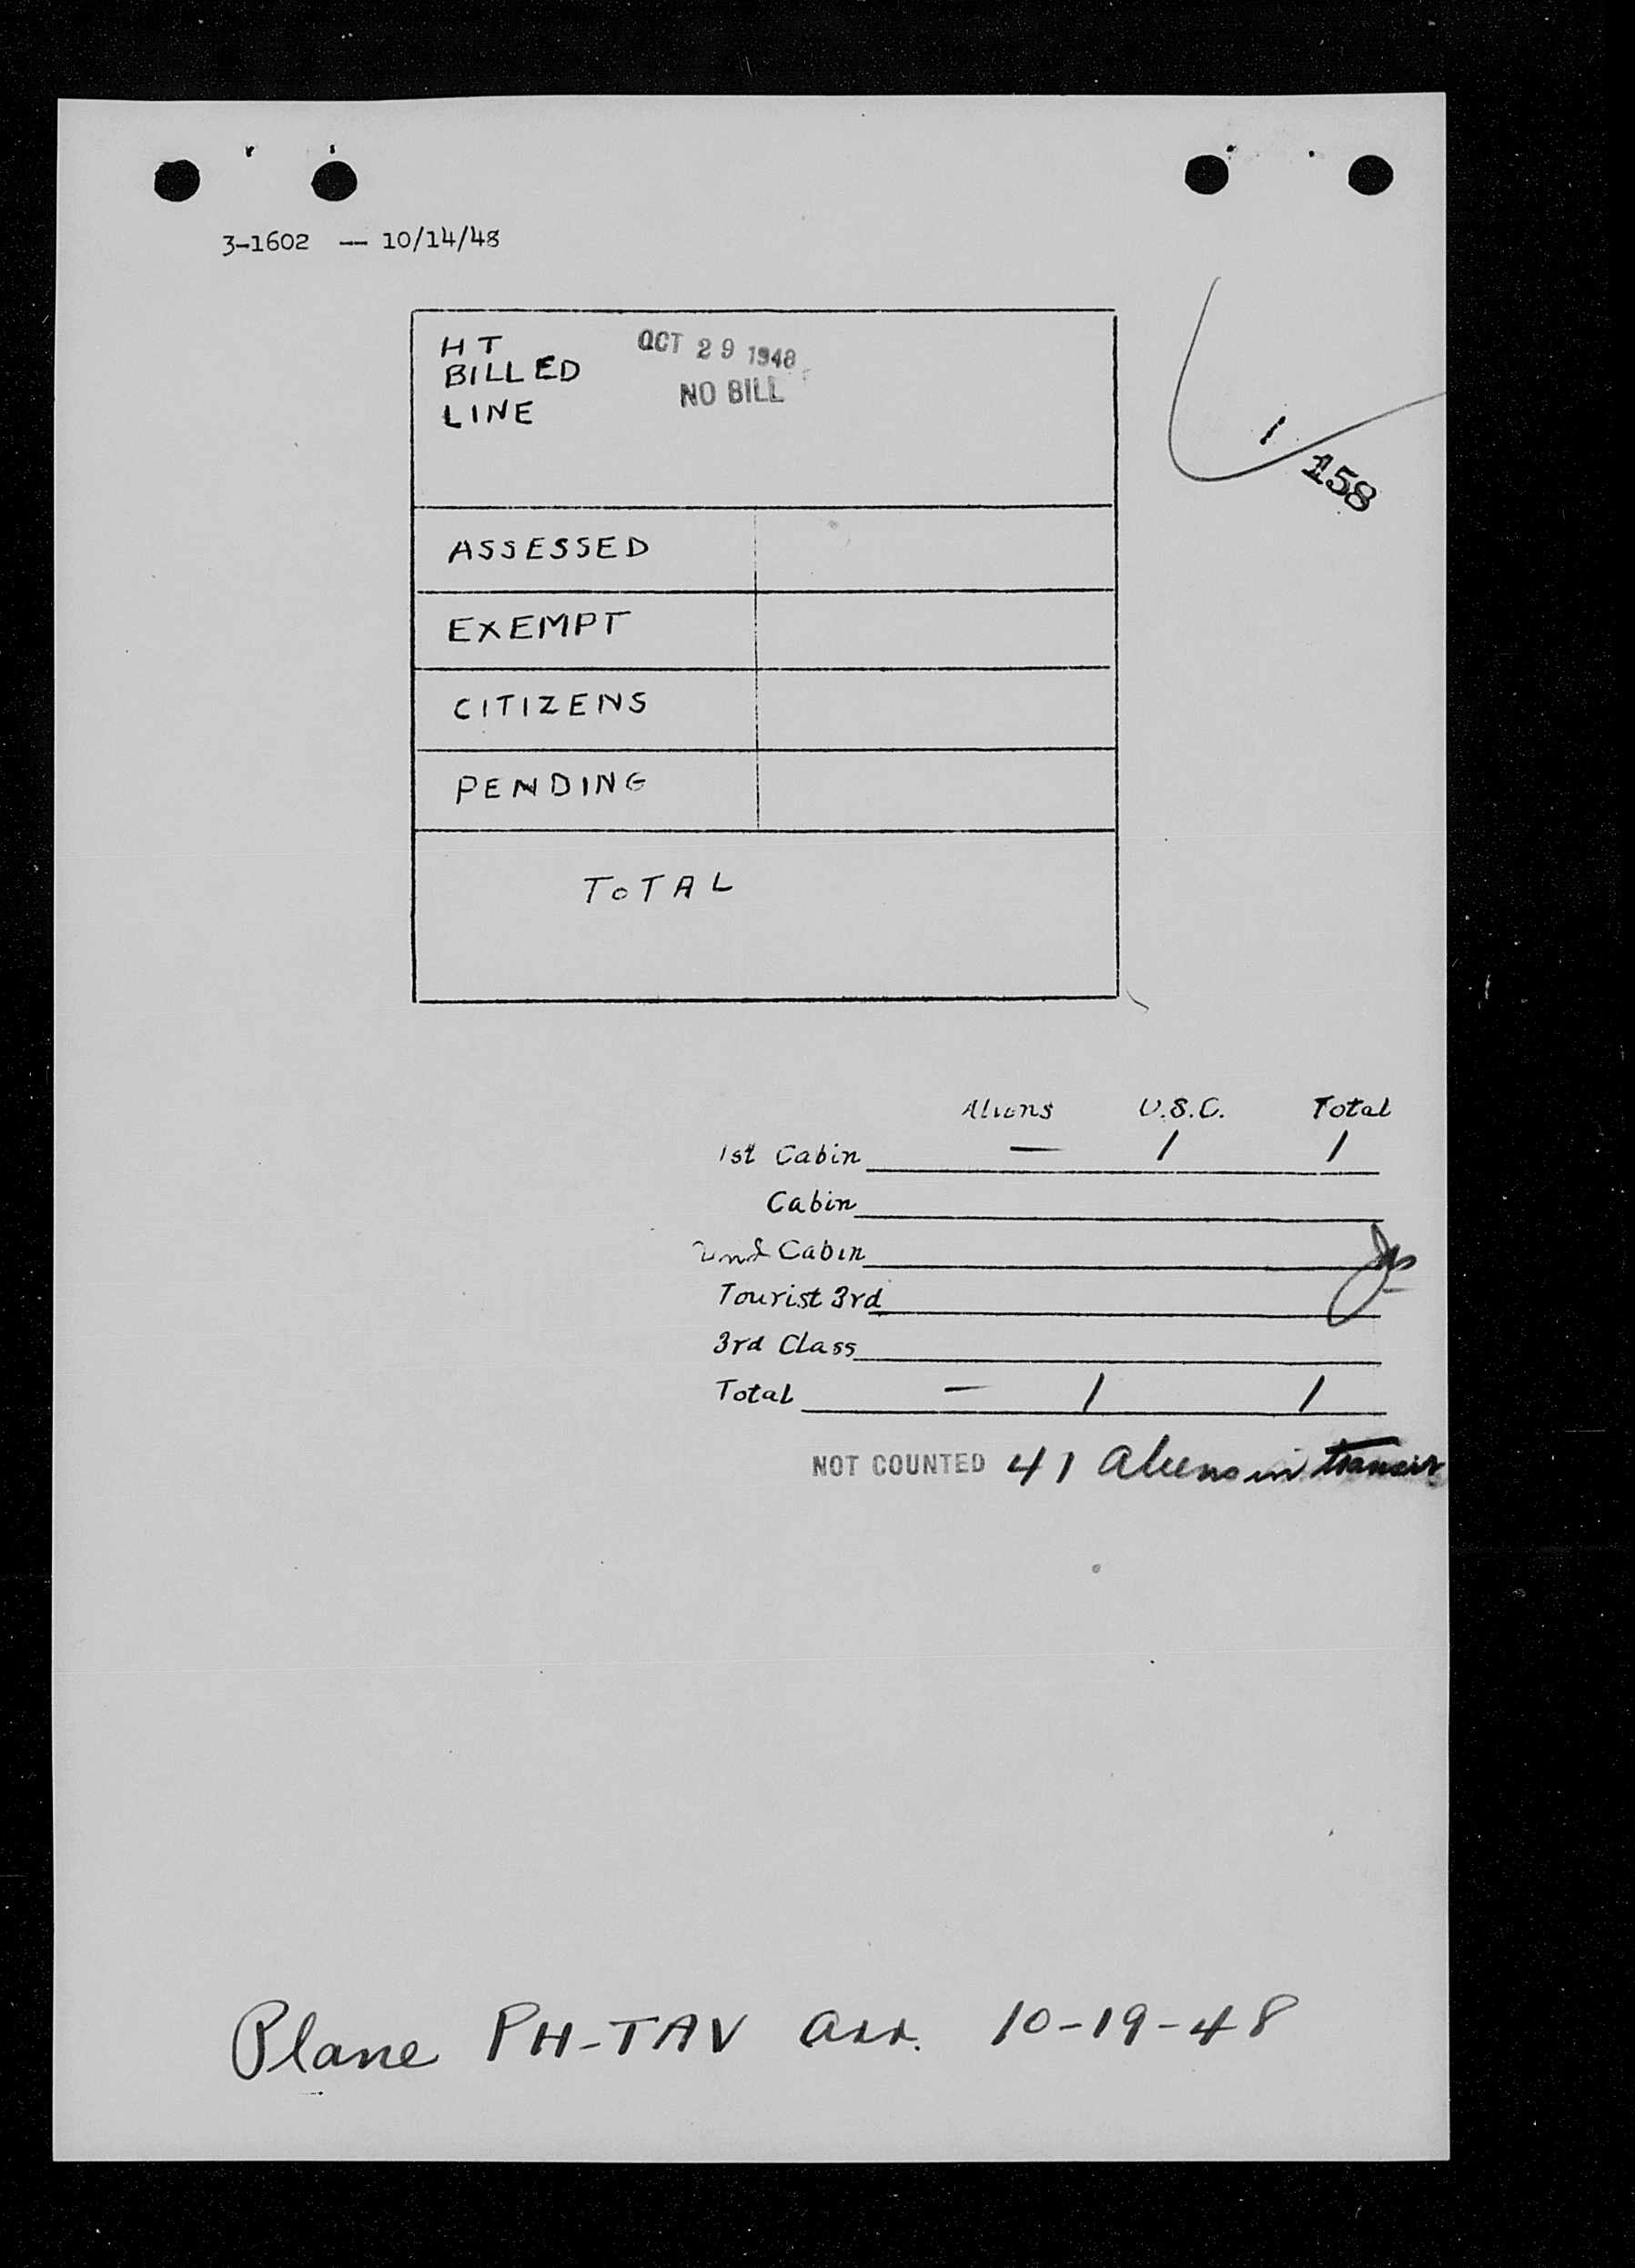 3-1602 -- 10/14/48
HT OCT 29 1948
BILLED NO BILL
LINE
1
158
ASSESSED
EXEMPT
CITIZENS
PENDING
TOTAL
Aliens U.S.C. Total
1st Cabin — 1 1
Cabin
2nd Cabin
Tourist 3rd
3rd Class
Total — 1 1
NOT COUNTED 41 aliens in transit
Plane PH-TAV arr. 10-19-48